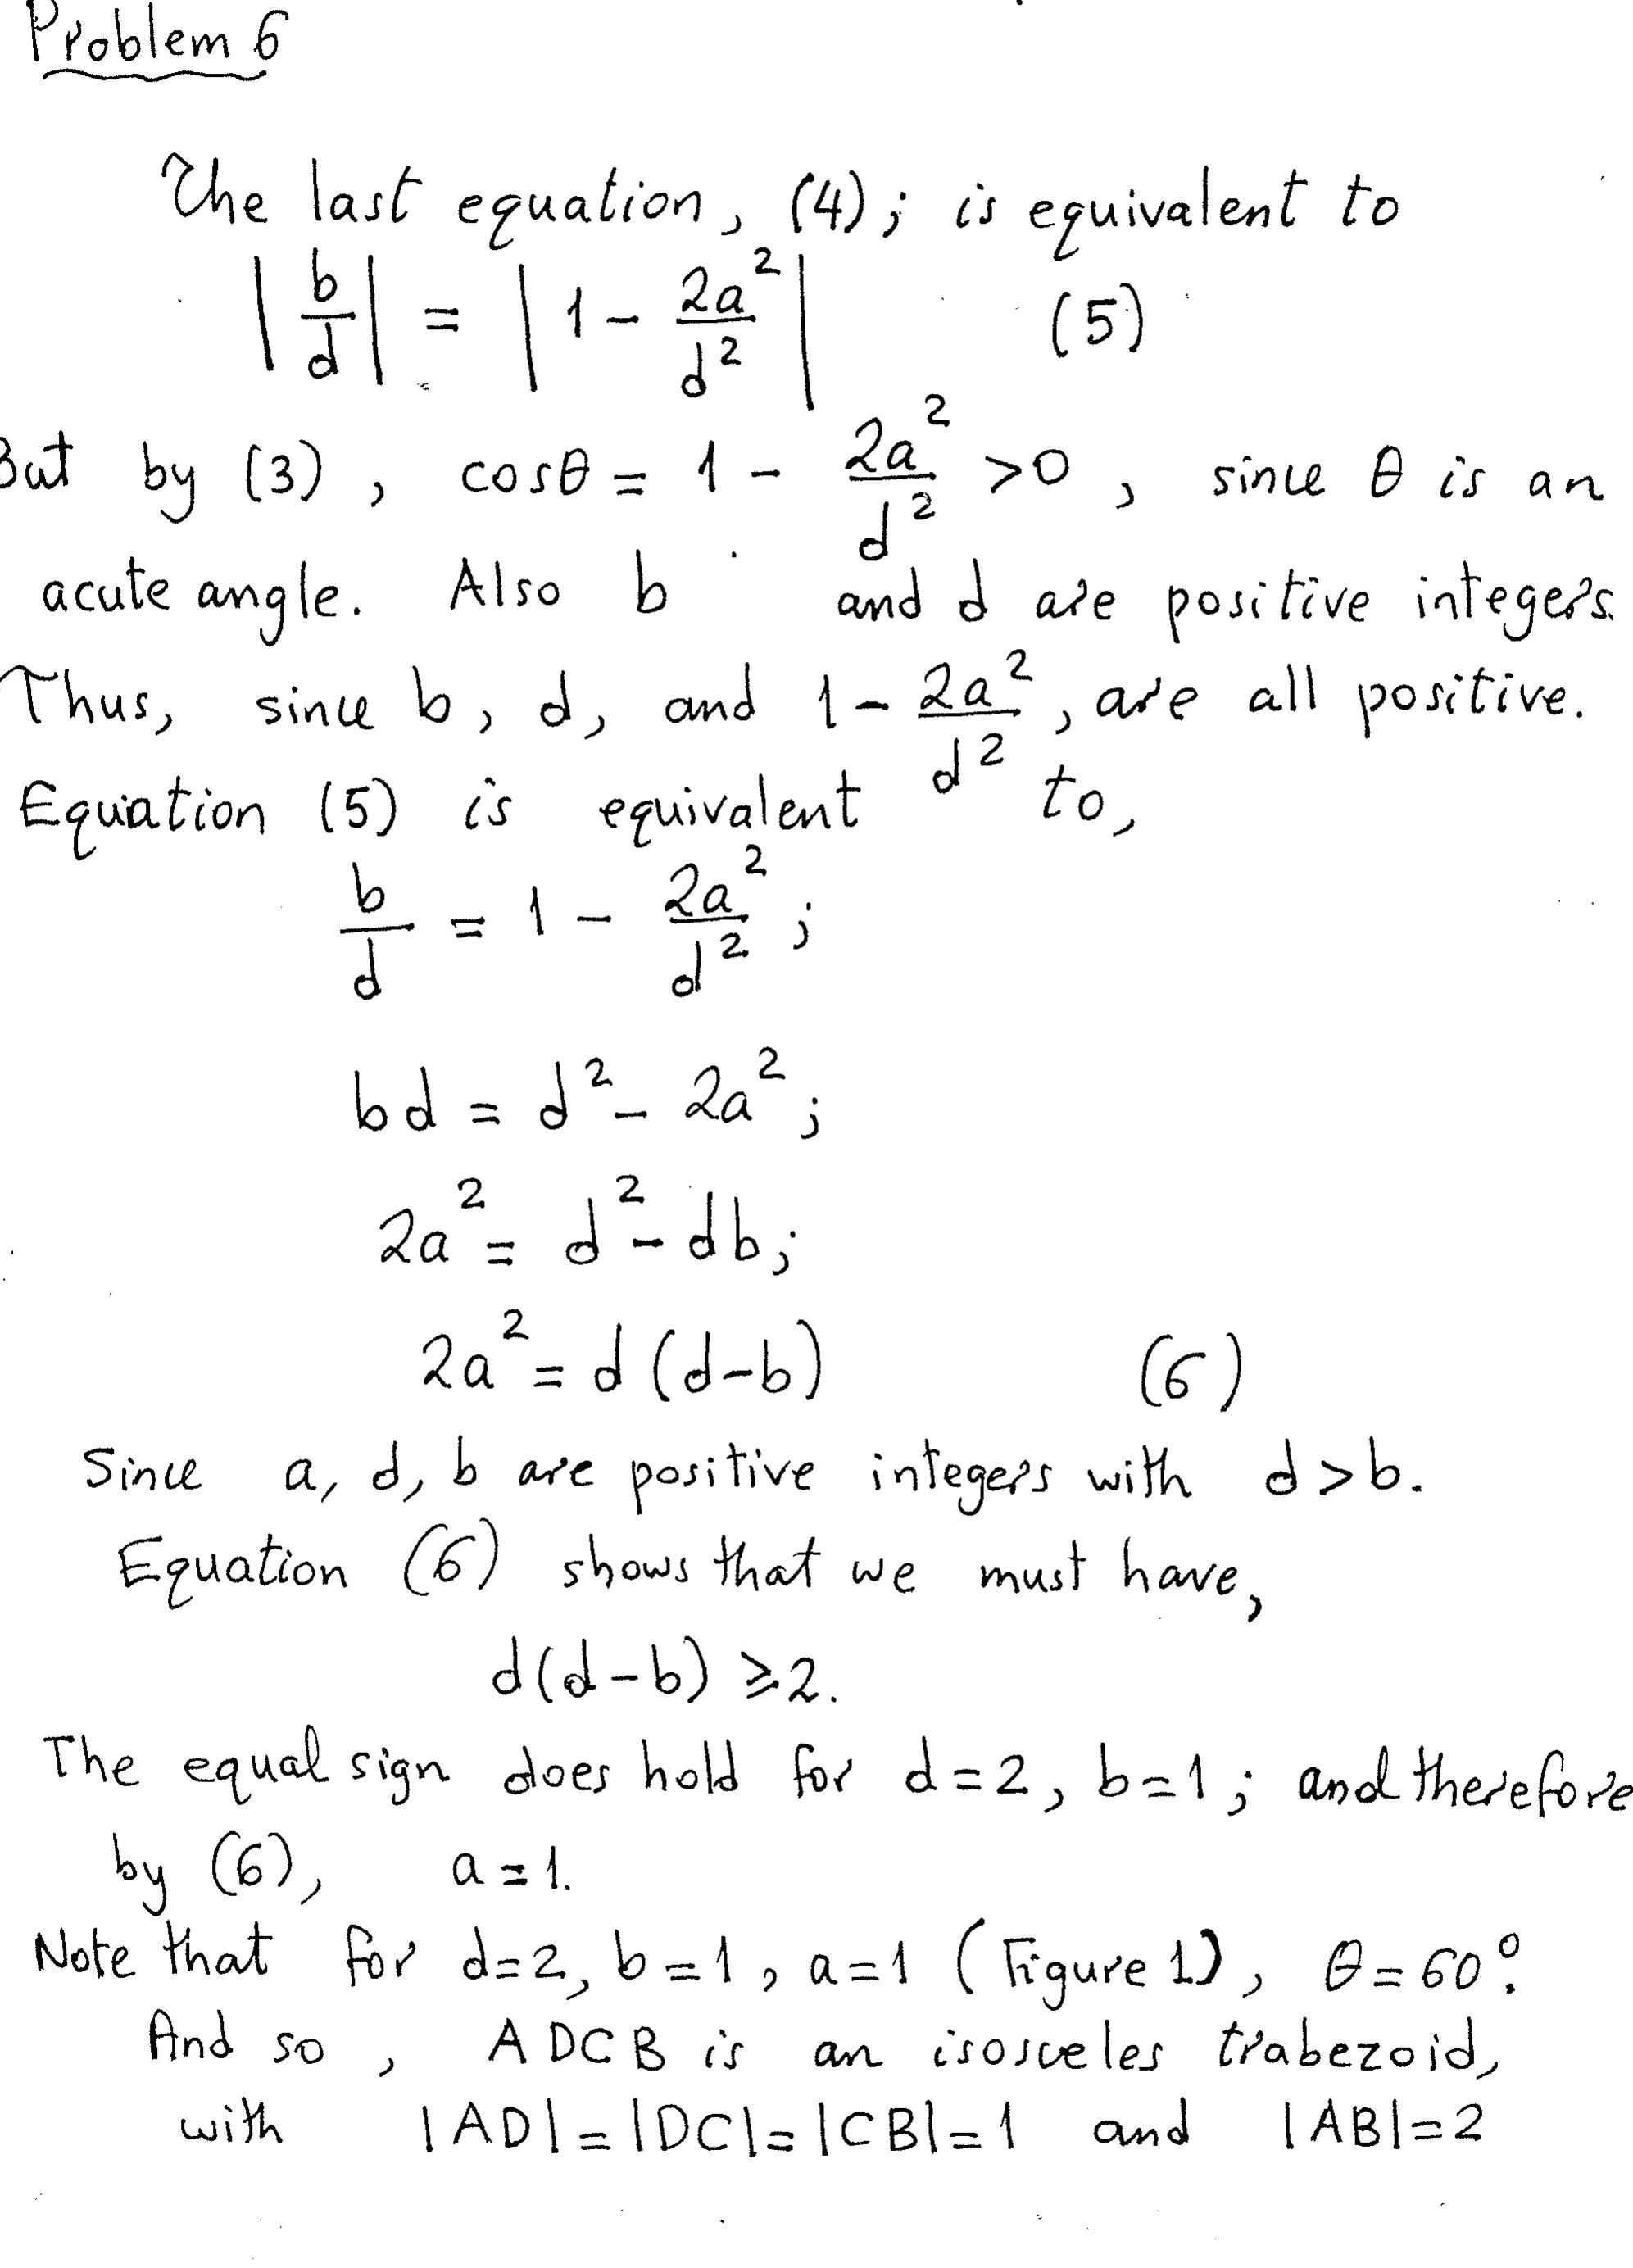 Problem 6
The last equation, (4); is equivalent to
|b/d| = |1 - 2a²/d²| (5)
But by (3), cosθ = 1 - 2a²/d² >0, since θ is an
acute angle. Also b and d are positive integers.
Thus, since b, d, and 1 - 2a²/d², are all positive.
Equation (5) is equivalent to,
b/d = 1 - 2a²/d²;
bd = d² - 2a²;
2a² = d² - db;
2a² = d(d-b) (6)
Since a, d, b are positive integers with d>b.
Equation (6) shows that we must have,
d(d-b) ≥2.
The equal sign does hold for d=2, b=1; and therefore
by (6), a=1.
Note that for d=2, b=1, a=1 (Figure 1), θ=60°.
And so, ADCB is an isosceles trabezoid,
with |AD|=|DC|=|CB|=1 and |AB|=2